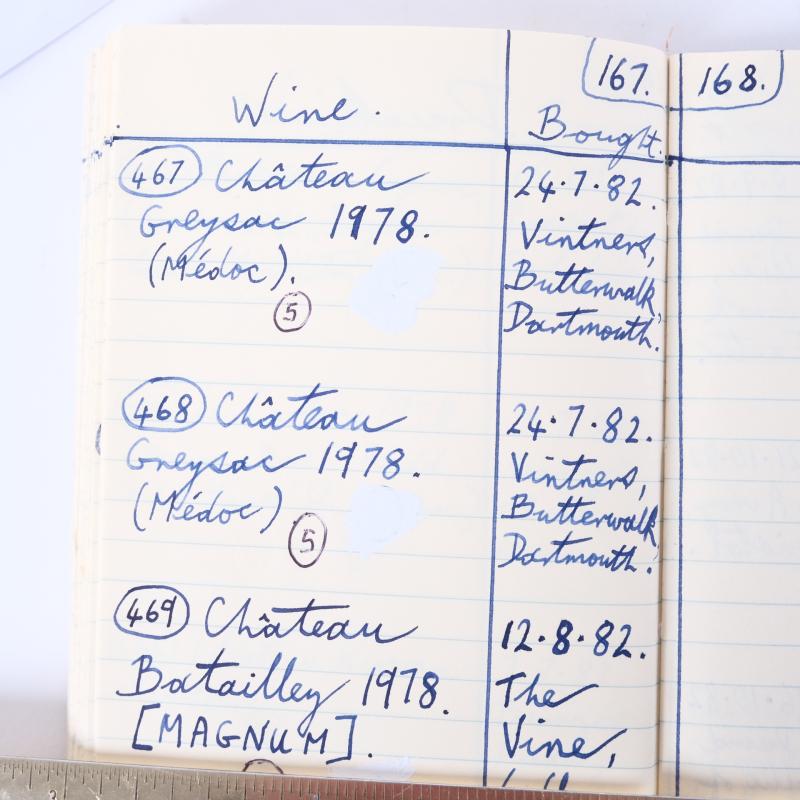 167.
168.
Wine.
Bought.
467 Château
Greysac 1978.
(Médoc).
5
24.7.82.
Vintners,
Butterwalk,
Dartmouth.
468 Château
Greysac 1978.
(Médoc).
5
24.7.82.
Vintners,
Butterwalk,
Dartmouth.
469 Château
Batailley 1978.
[MAGNUM].
12.8.82.
The
Vine,
1
2
3